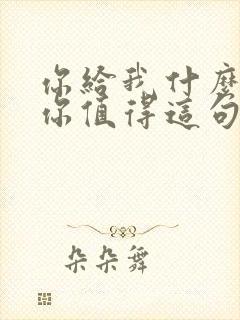 你給我什麼
你值得這句
朵朵舞